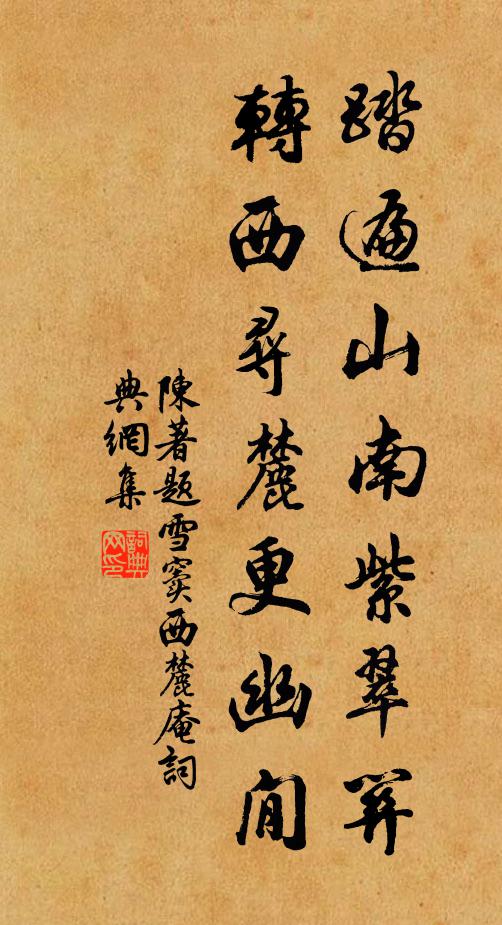 踏遍山南紫翠關
轉西尋麓更幽閒
陳著題雪竇西麓庵詞
典網集
詞典
网印